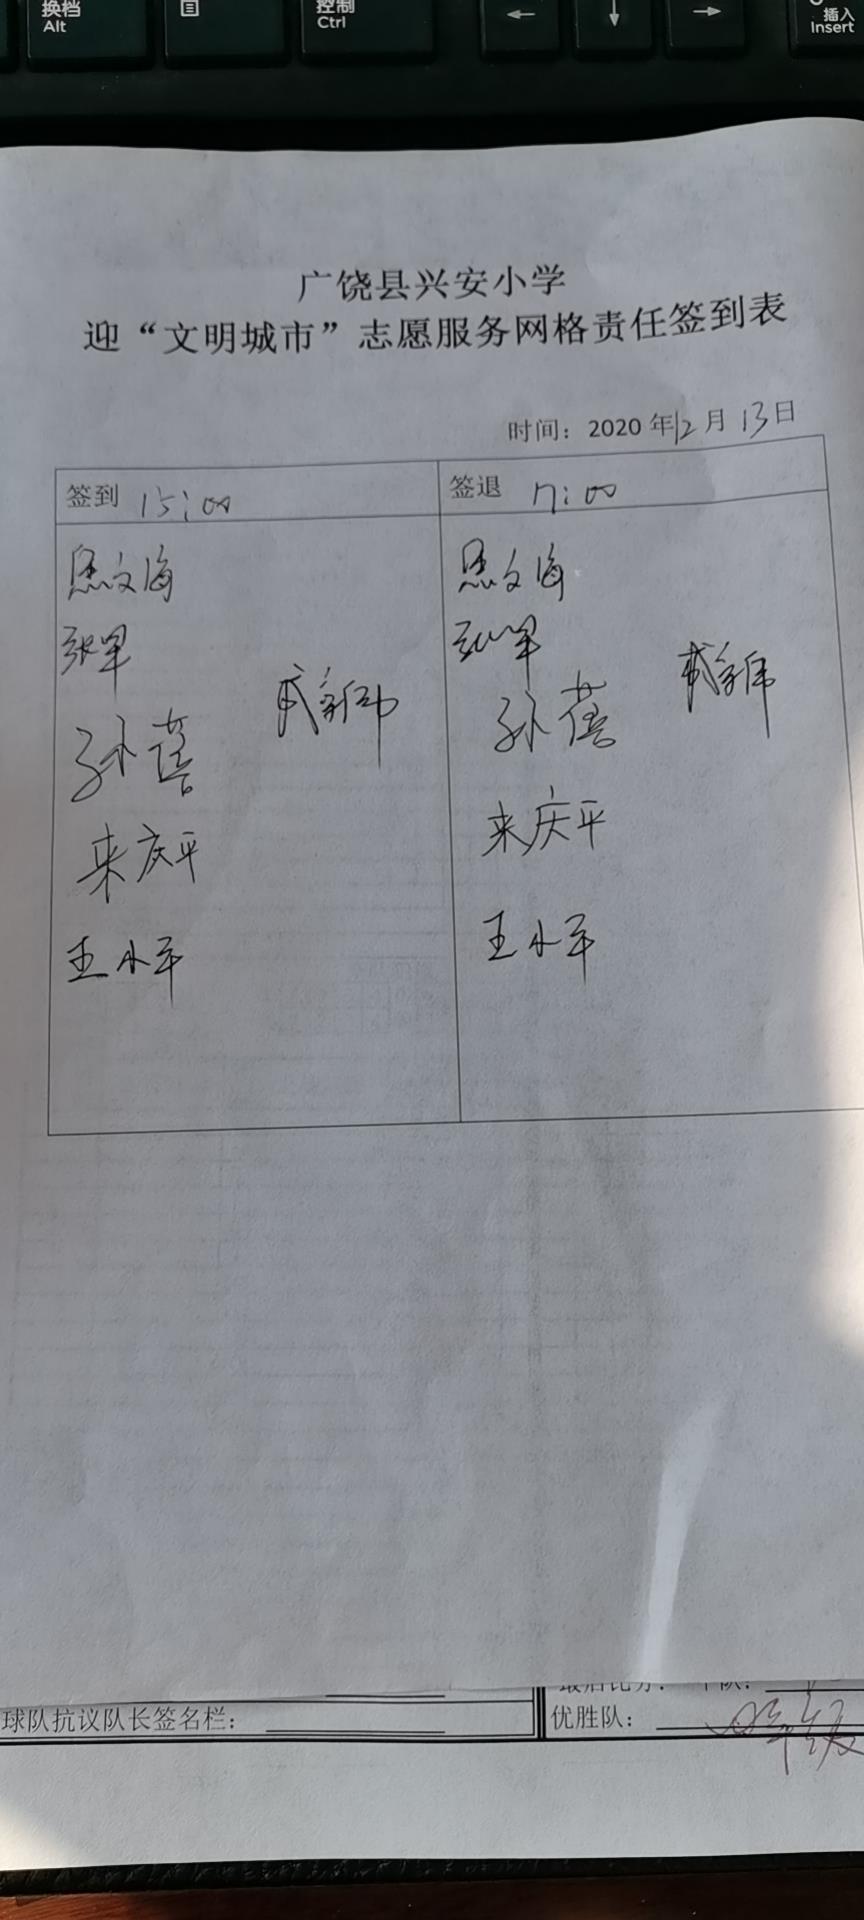 换档
Alt
控制
Ctrl
←
↓
→
插入
Insert
广饶县兴安小学
迎“文明城市”志愿服务网格责任签到表
时间：2020年12月13日
签到 15:00
签退 17:00
文海
文海
张军
孙蓓
孙蓓
来庆平
来庆平
王小军
王小军
球队抗议队长签名栏：
优胜队：